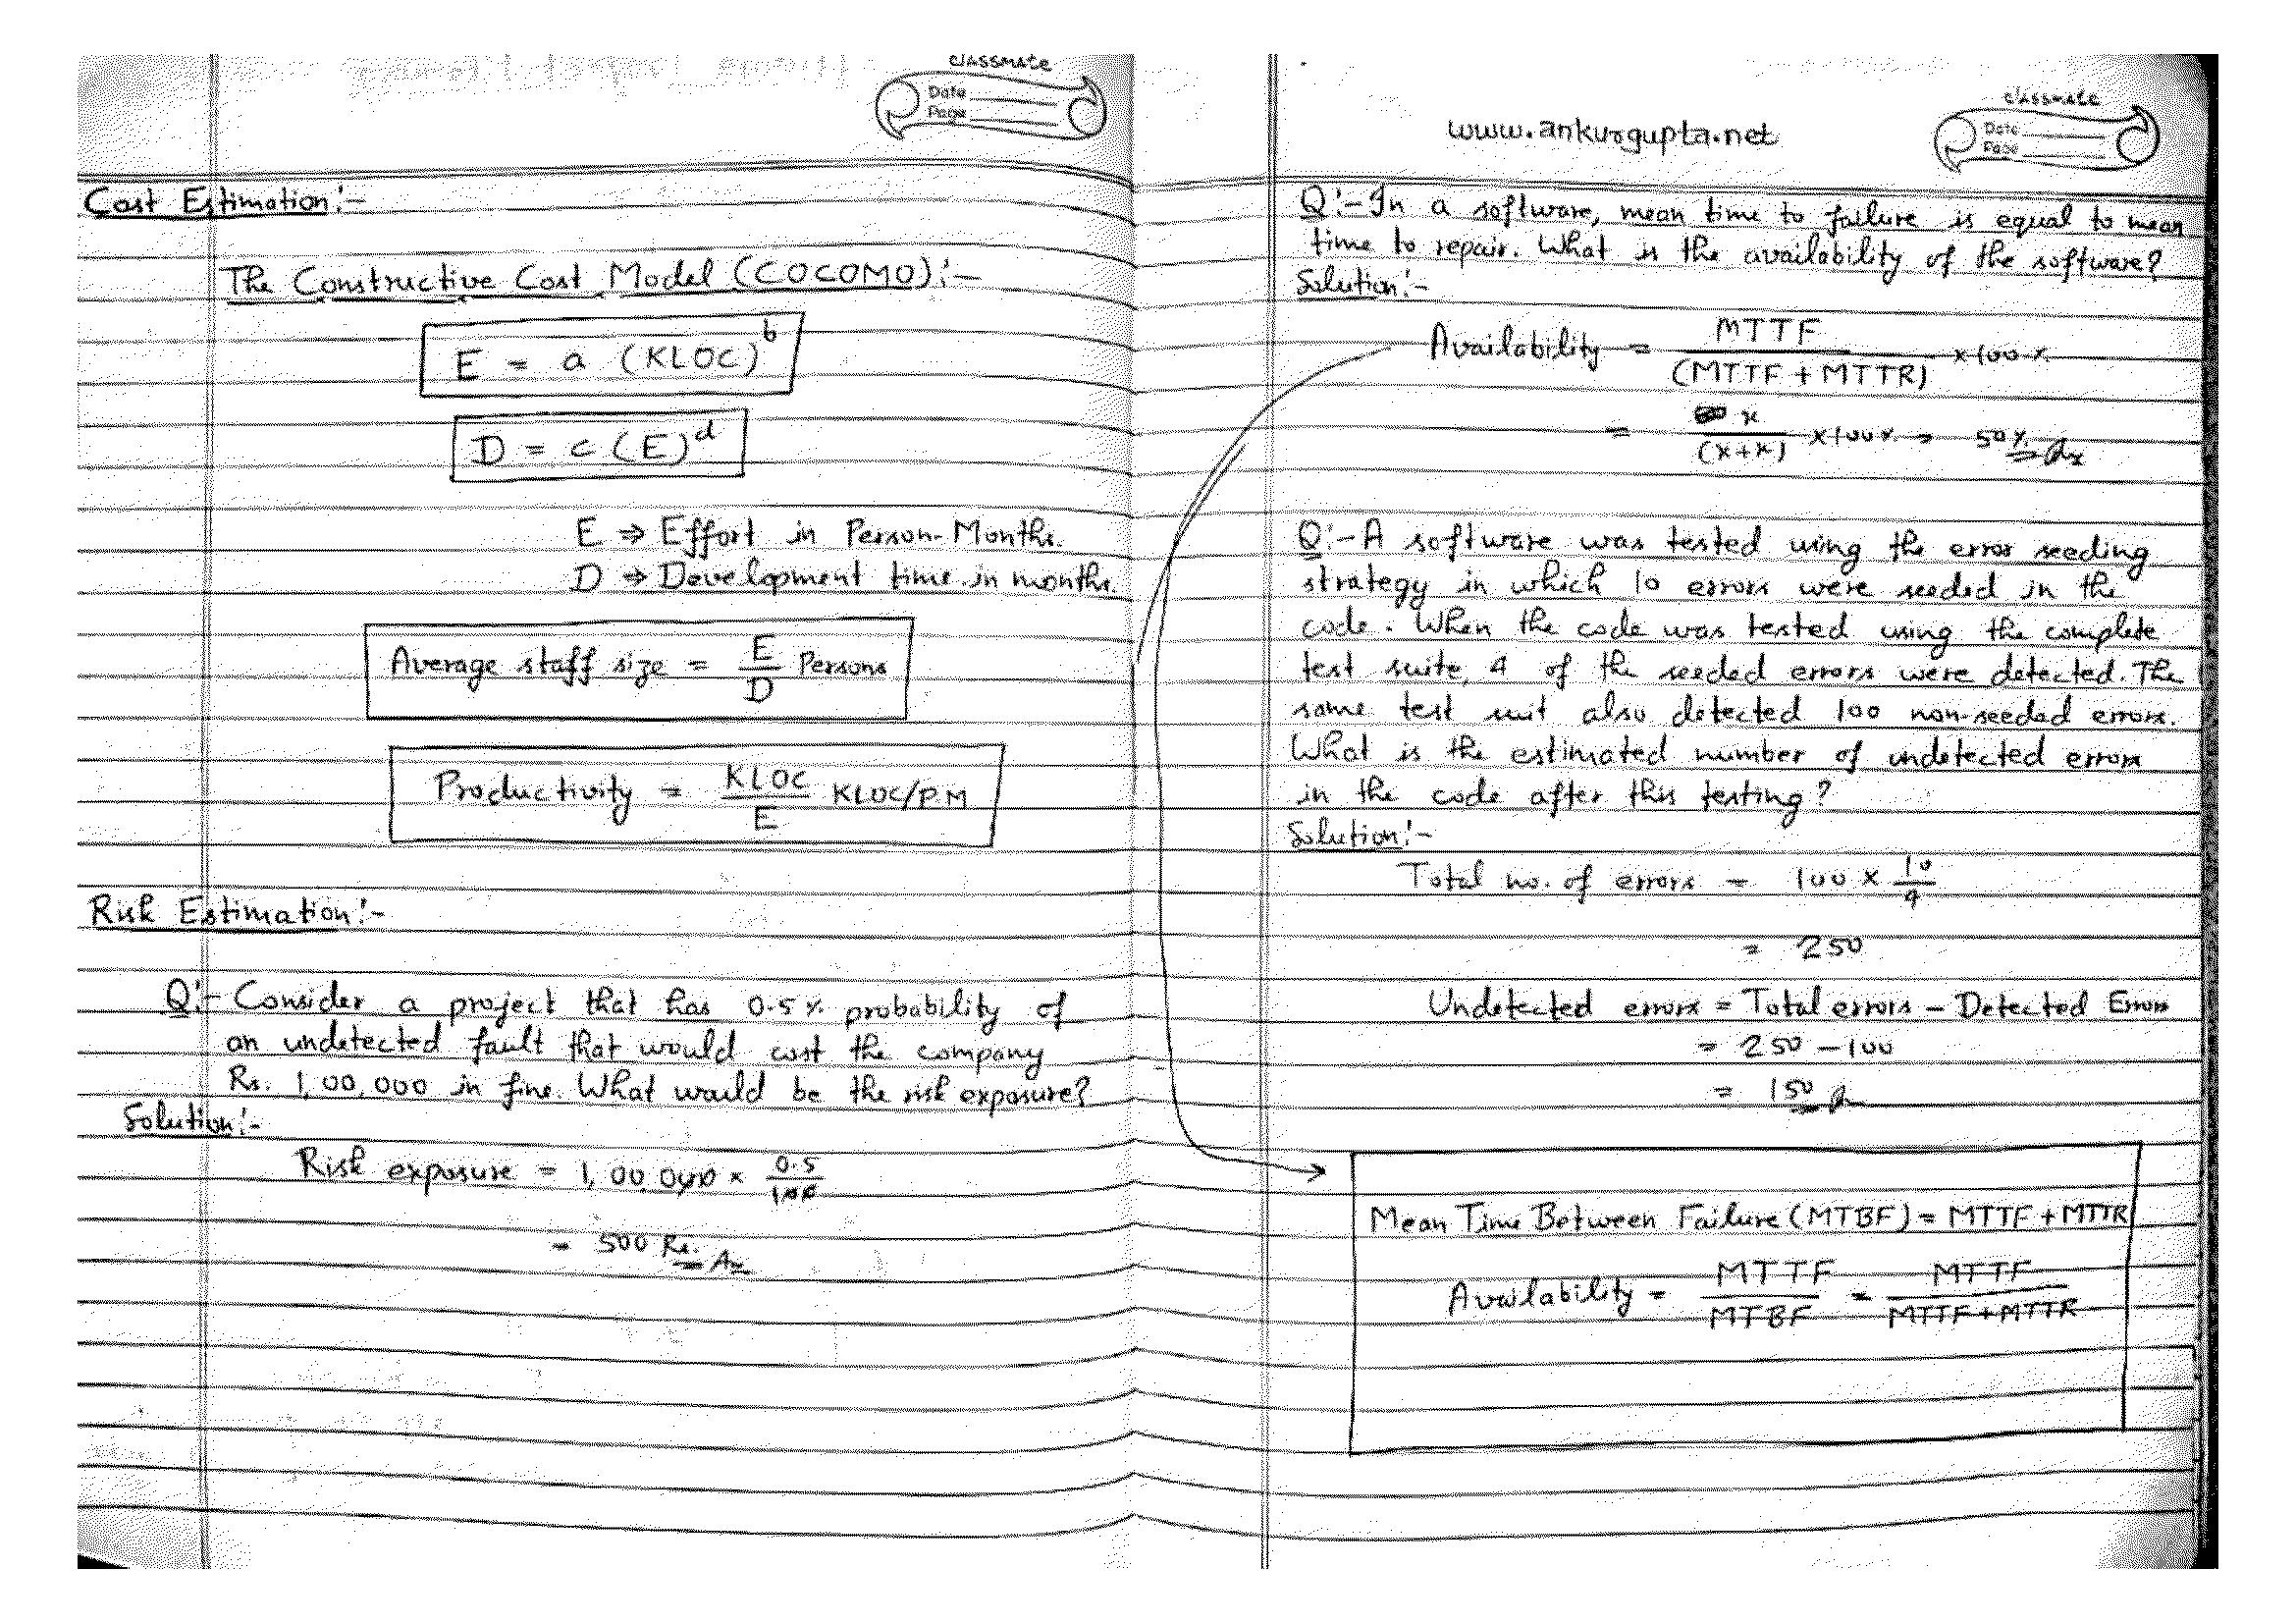 classmate
Date
Page
Cost Estimation:-
The Constructive Cost Model (COCOMO):-
E = a (KLOC)^b
D = c (E)^d
E ⇒ Effort in Person-Months.
D ⇒ Development time in months.
Average staff size = E/D Persons
Productivity = KLOC/E KLOC/PM
Risk Estimation:-
Q:- Consider a project that has 0.5% probability of
an undetected fault that would cost the company
Rs. 1,00,000 in fine. What would be the risk exposure?
Solution:-
Risk exposure = 1,00,000 × 0.5/100
= 500 Rs. Ans
www.ankurgupta.net
classmate
Date
Page
Q:- In a software, mean time to failure is equal to mean
time to repair. What is the availability of the software?
Solution:-
Availability = MTTF/(MTTF + MTTR) × 100 %
= x/(x+x) × 100% = 50% Ans
Q:- A software was tested using the error seeding
strategy in which 10 errors were seeded in the
code. When the code was tested using the complete
test suite, 4 of the seeded errors were detected. The
same test suit also detected 100 non-seeded errors.
What is the estimated number of undetected errors
in the code after this testing?
Solution:-
Total no. of errors = 100 × 10/4
= 250
Undetected errors = Total errors - Detected Errors
= 250 - 100
= 150
Mean Time Between Failure (MTBF) = MTTF + MTTR
Availability = MTTF/MTBF = MTTF/MTTF+MTTR